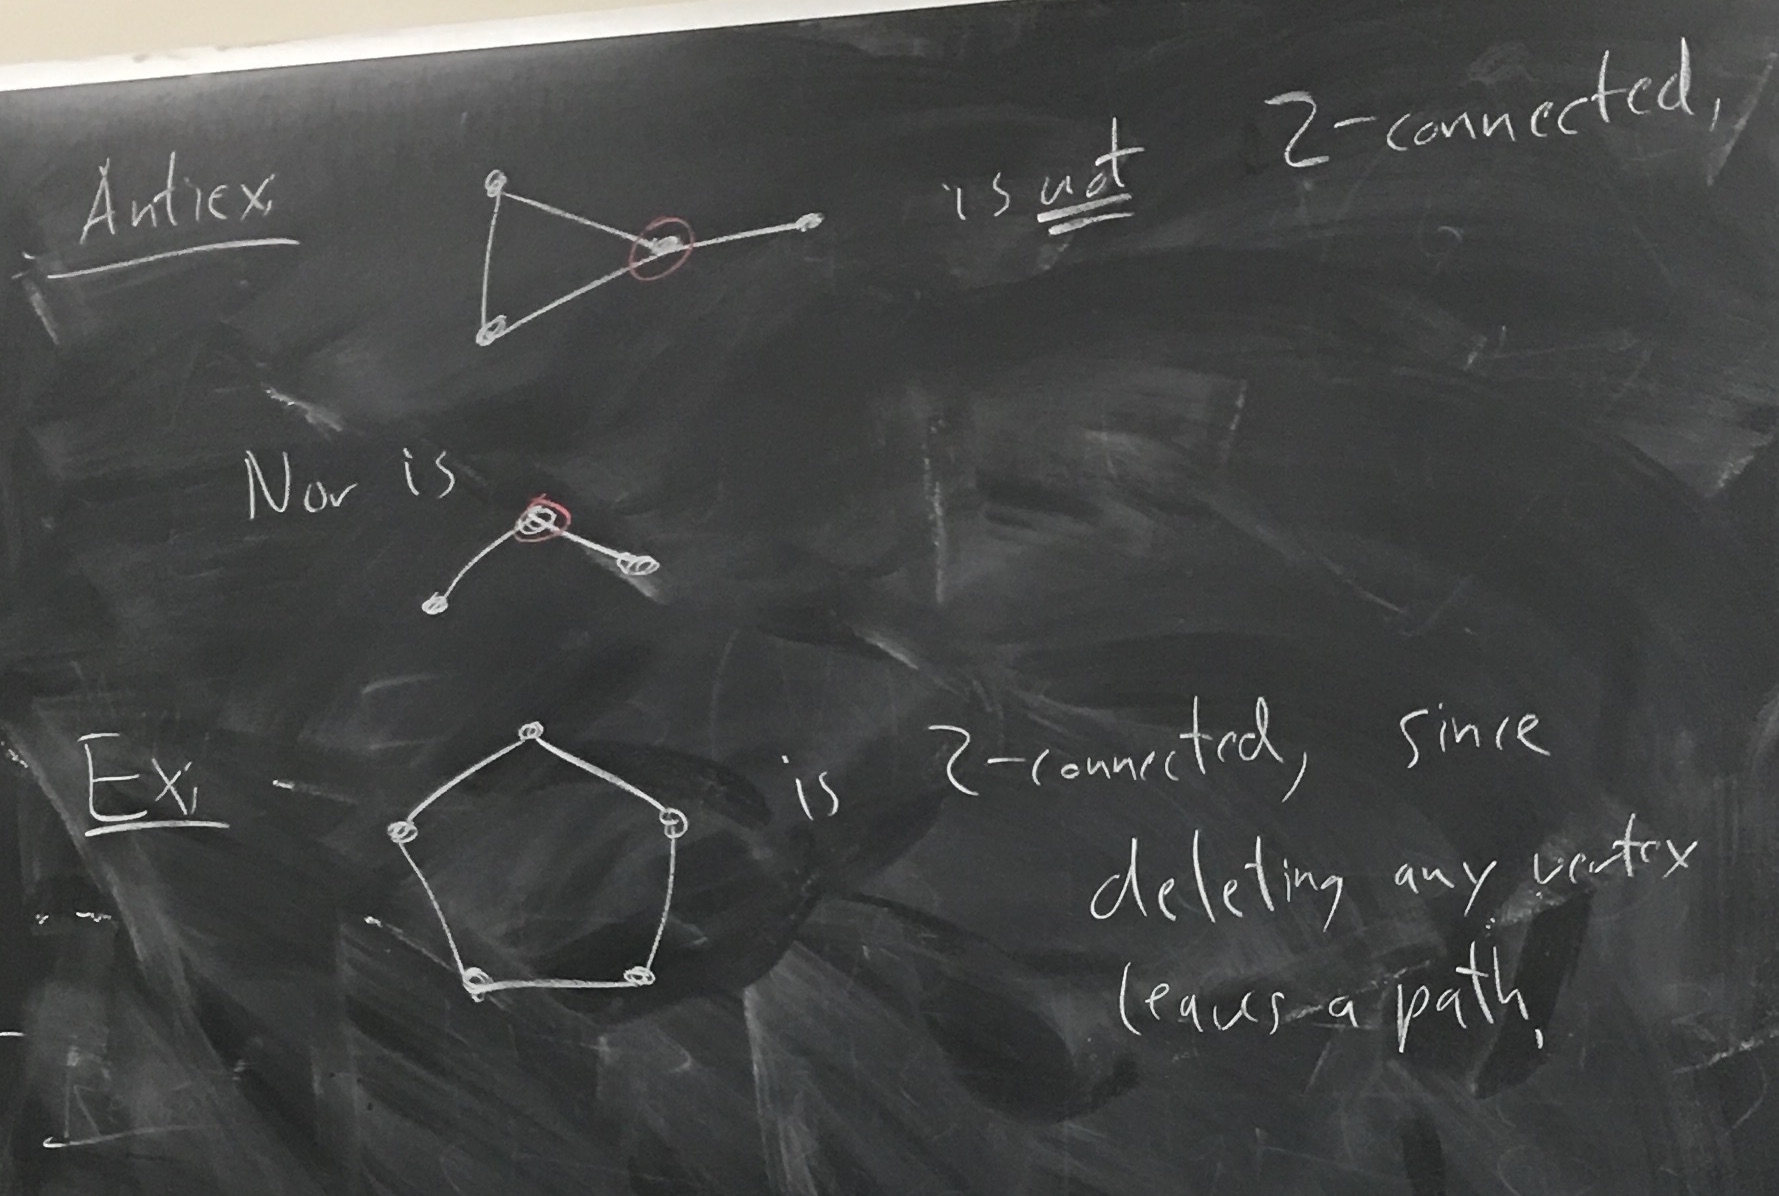 Antiex. is not 2-connected.
Nor is
Ex. is 2-connected, since
deleting any vertex
leaves a path.